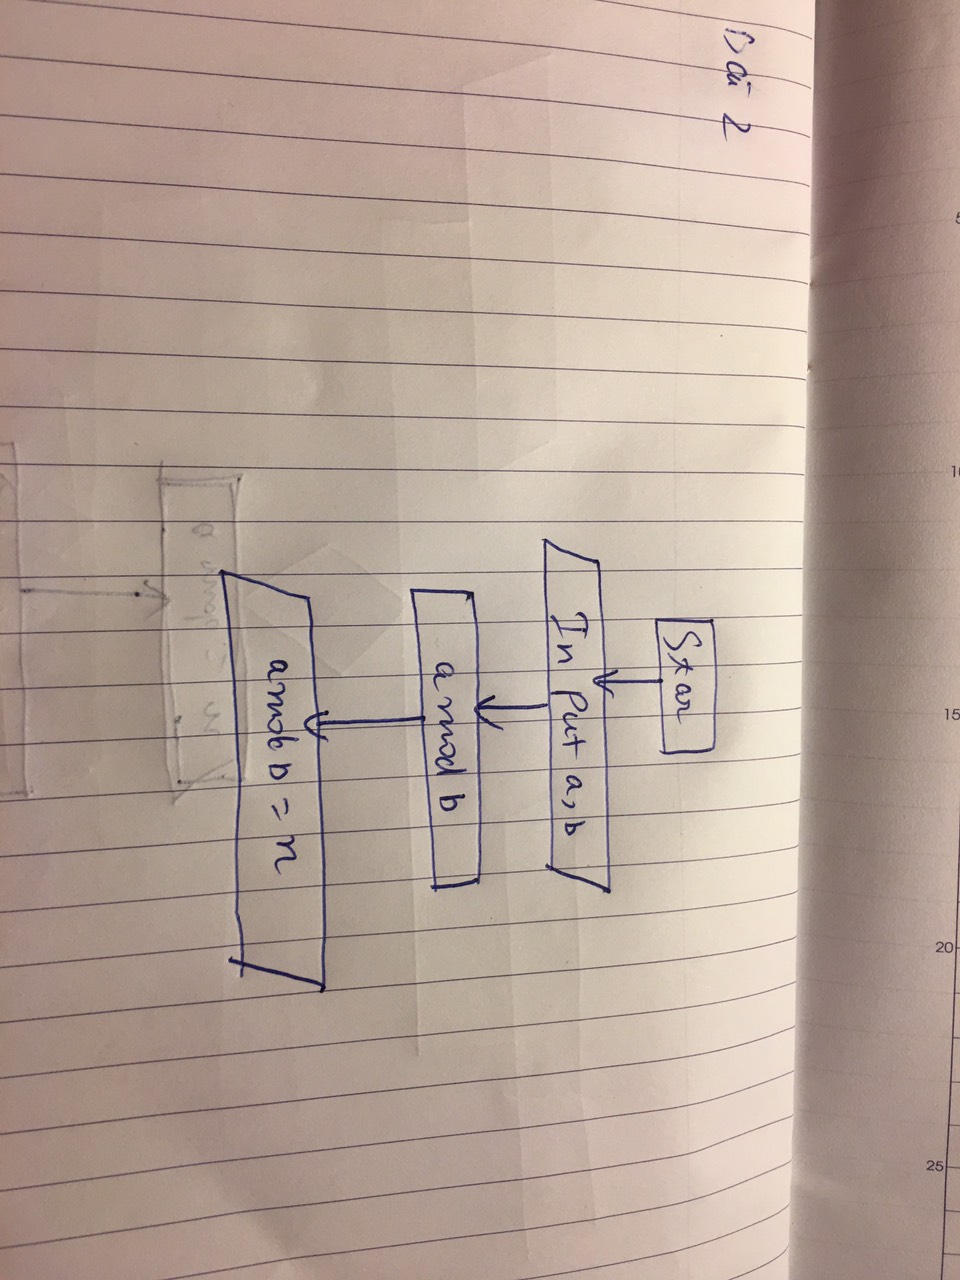 Bài 2
Star
In put a, b
a mod b
a mob b = n
5
10
15
20
25